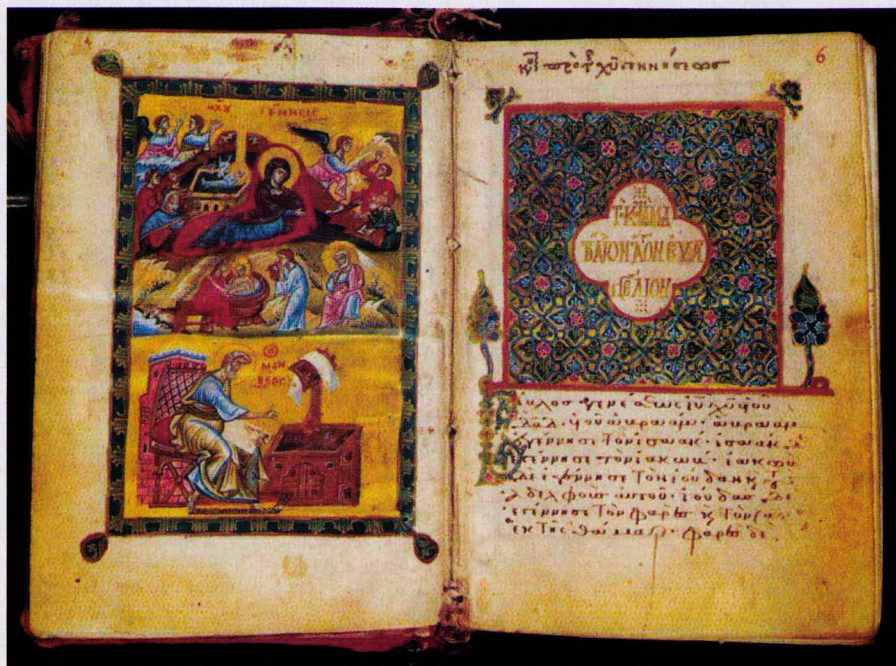 ΧΥ ΓΕΝΝΗCΙC
6
πρὸ χυ γεννήσεως
ΚΑΤ ΜΑ
ΘΑΙΟΝ ΑΓΙΟΝ ΕΥΑΓ
ΓΕΛΙΟΝ
Βίβλος γενέσεως ιυ χυ υἱοῦ
δαδ · υἱοῦ ἀβραάμ · ἀβραάμ
ἐγέννησε τὸν ἰσαάκ · ἰσαάκ δὲ
ἐγέννησε τὸν ἰακώβ · ἰακώβ
δὲ ἐγέννησε τὸν ἰούδαν κ
ἀδελφοὺς αὐτοῦ · ἰούδας δὲ
ἐγέννησε τὸν φαρὲς κ τὸν ζα
ἐκ τῆς θάμαρ · φαρὲς δὲ